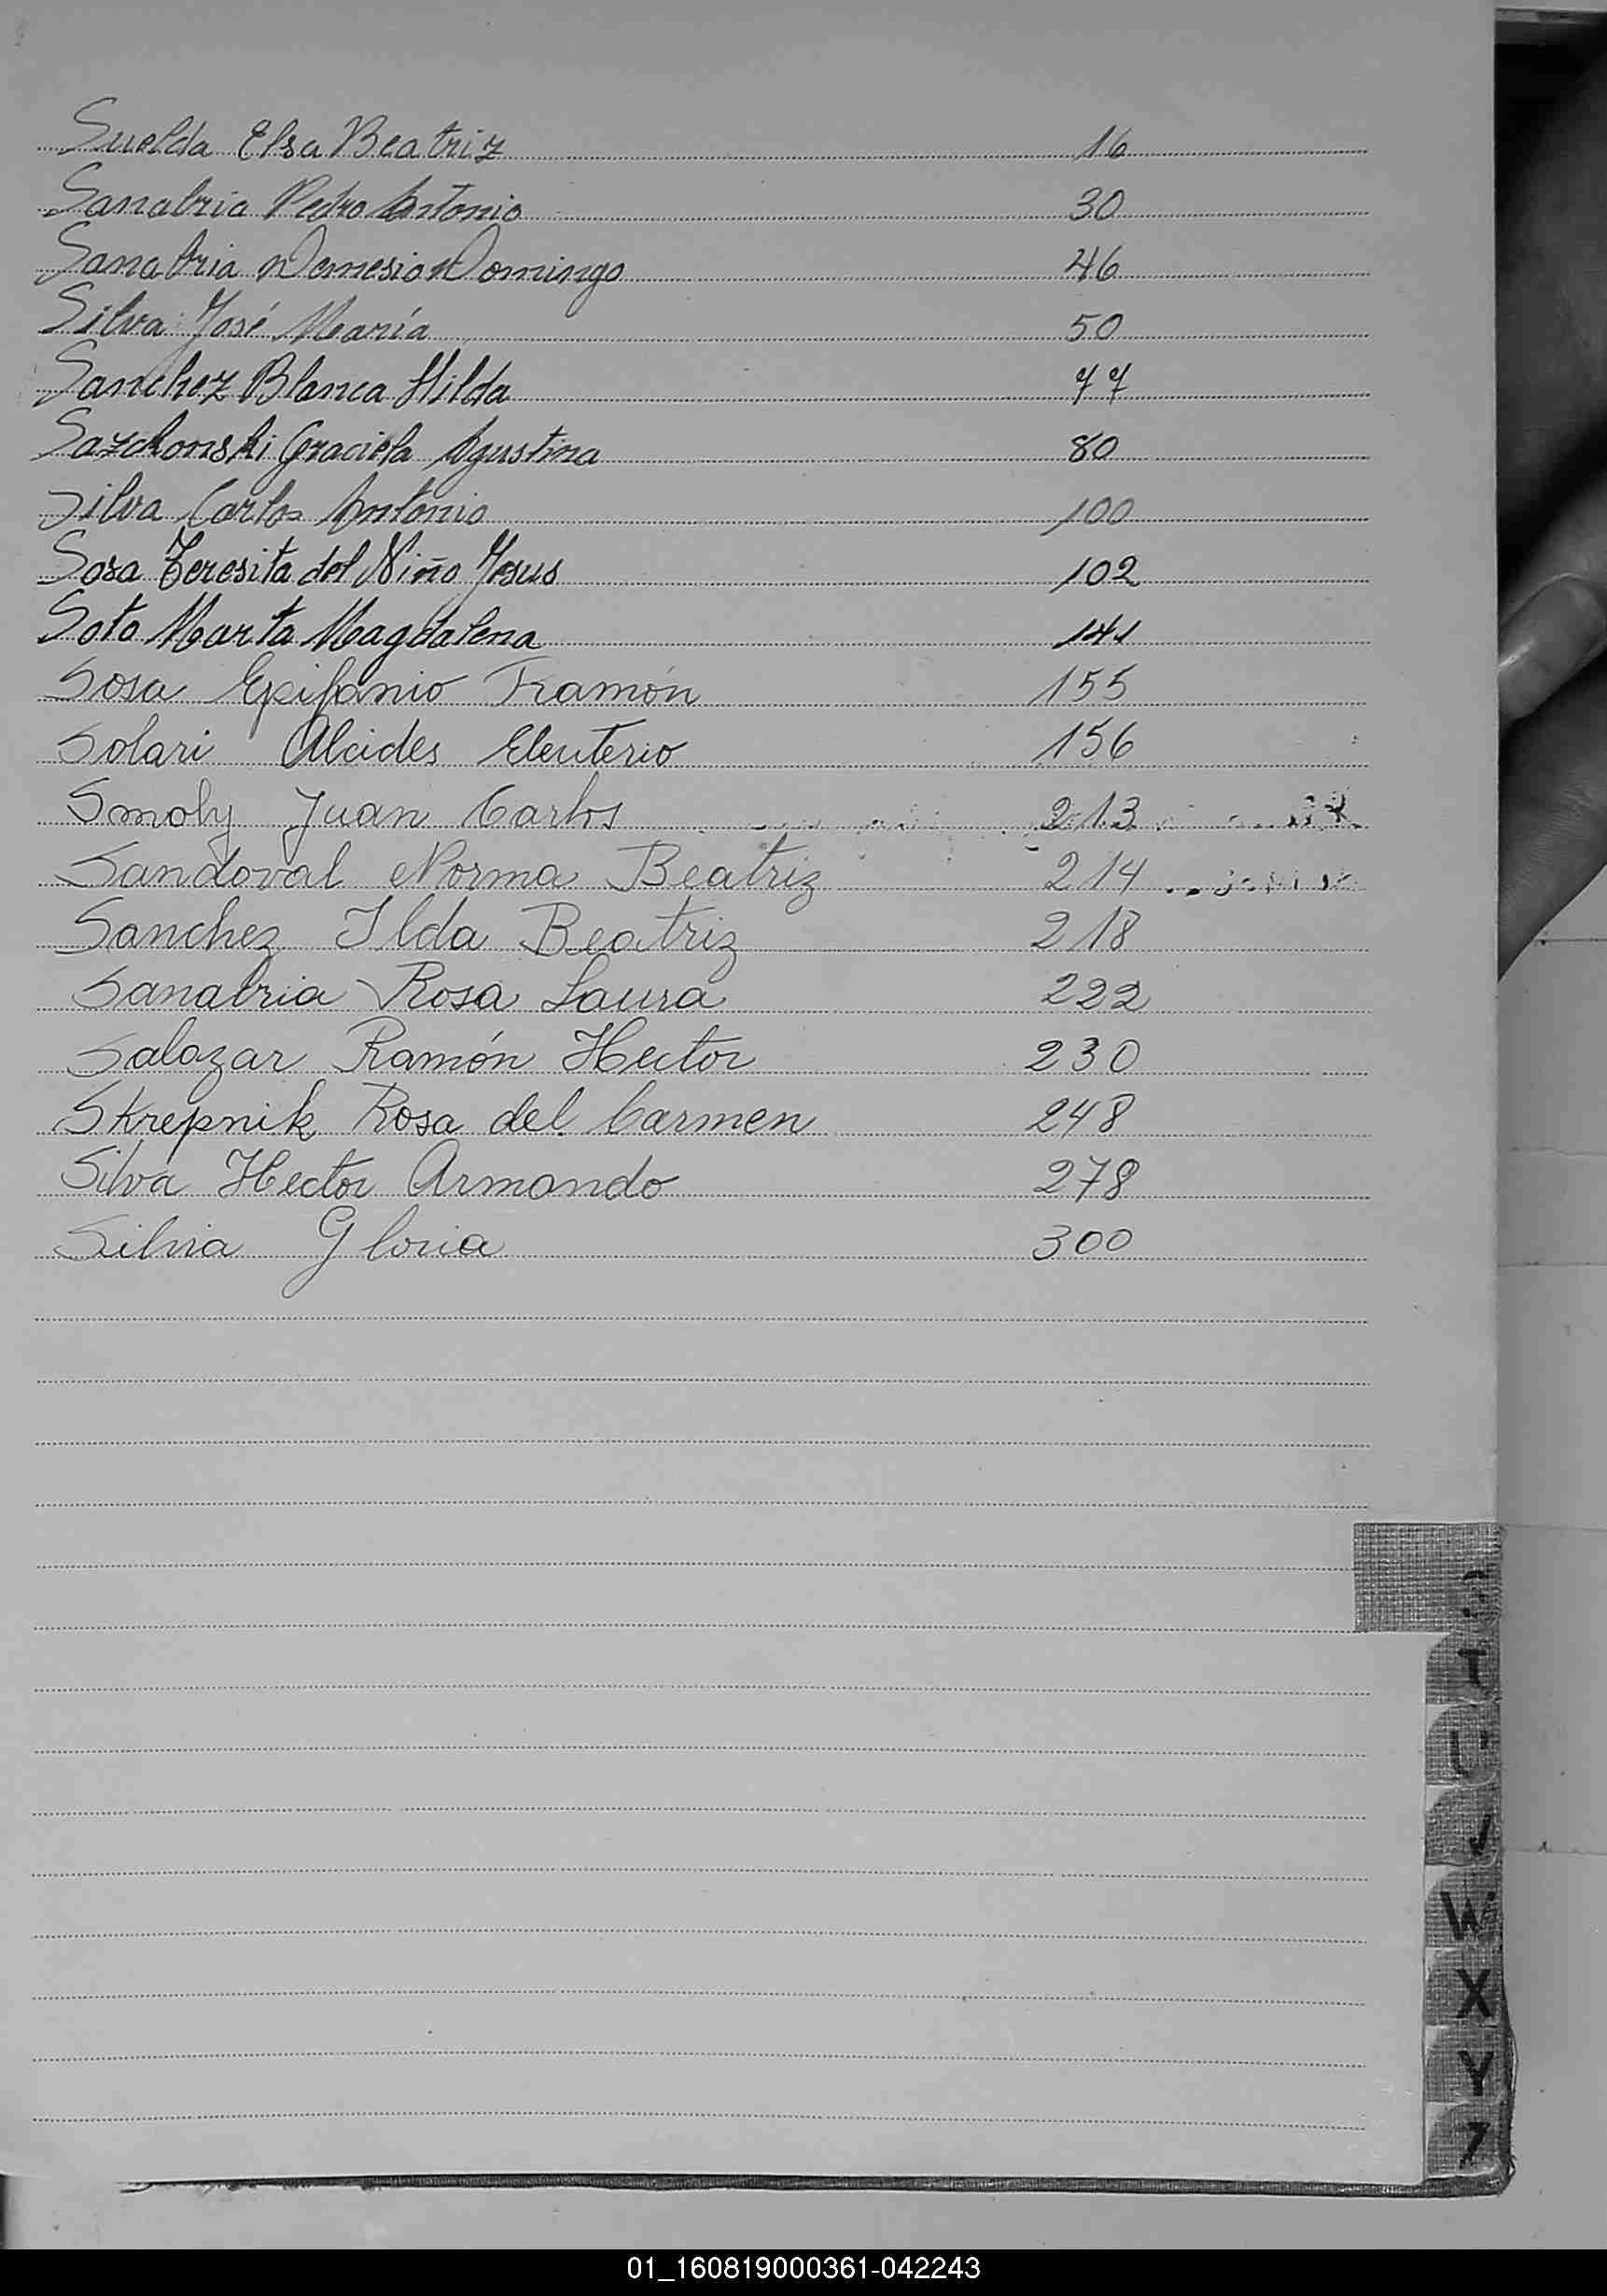 Suelda Elsa Beatriz 16
Sanabria Pedro Antonio 30
Sanabria Nemesio Domingo 46
Silva José María 50
Sanchez Blanca Hilda 77
Sazchonski Graciela Agustina 80
Silva Carlos Antonio 100
Sosa Teresita del Niño Jesus 102
Soto Marta Magdalena 141
Sosa Epifanio Ramón 155
Solari Alcides Eleuterio 156
Smoly Juan Carlos 213
Sandoval Norma Beatriz 214
Sanchez Ilda Beatriz 218
Sanabria Rosa Laura 222
Salazar Ramón Hector 230
Skrepnik Rosa del Carmen 248
Silva Hector Armando 278
Silvia Gloria 300
S
T
U
V
W
X
Y
Z
01_160819000361-042243